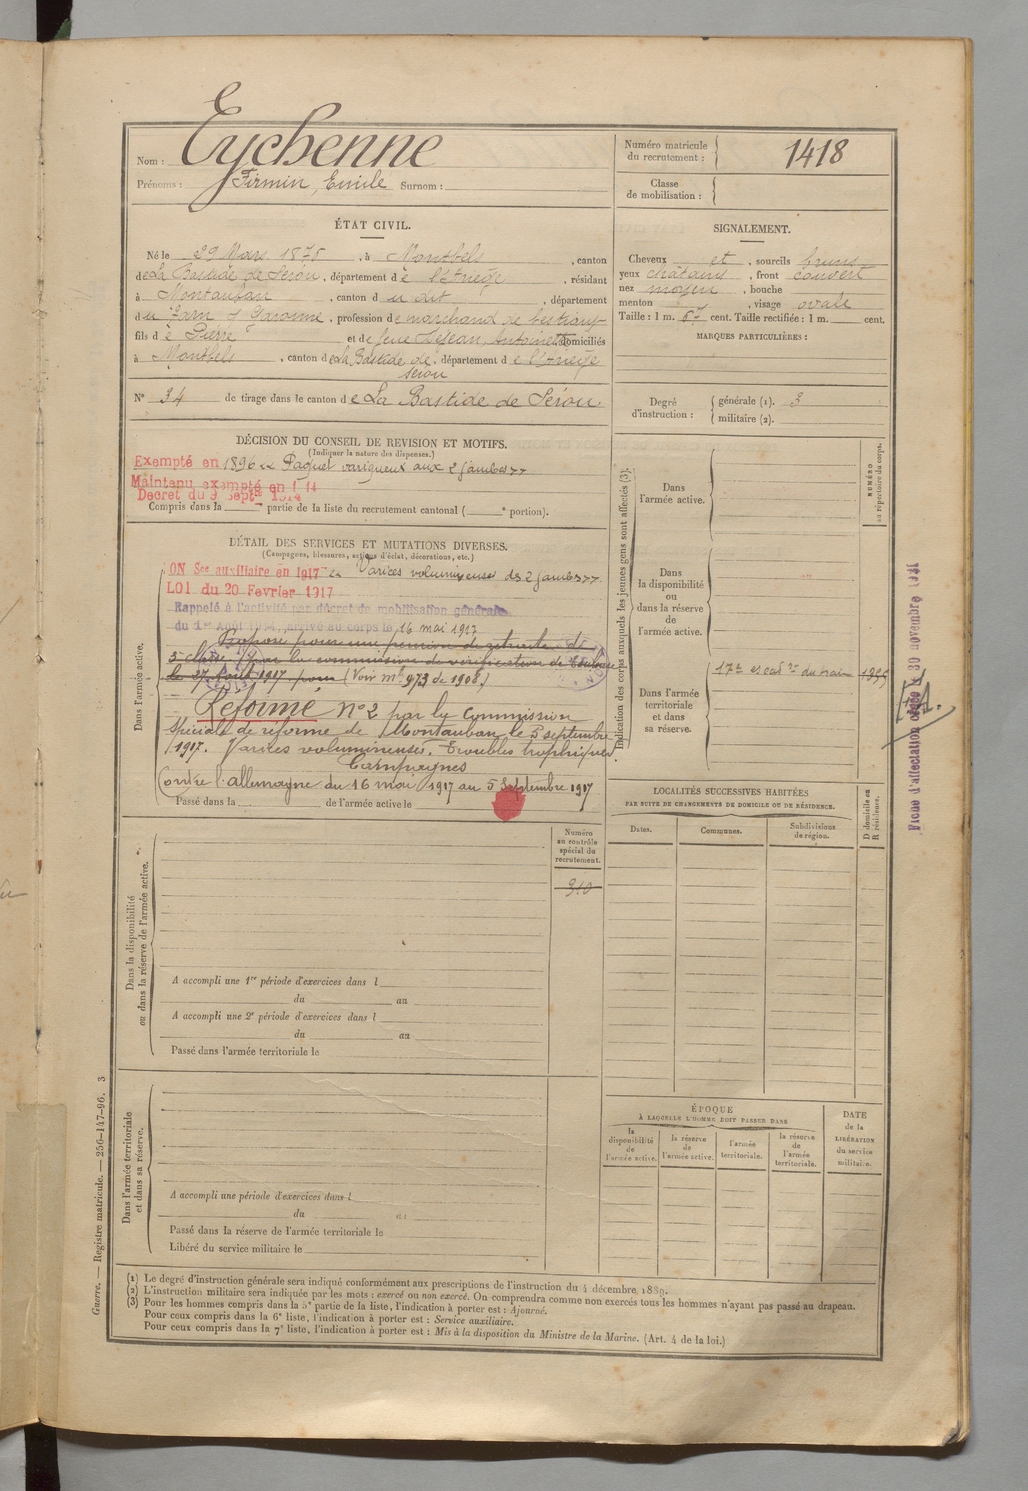 Nom : Eychenne
Prénoms : Firmin, Emile Surnom :
Numéro matricule
du recrutement : 1418
Classe
de mobilisation :
ÉTAT CIVIL.
Né le 29 Mars 1876, à Montbels, canton
de La Bastide de Sérou, département de l'Ariège, résidant
à Montauban, canton du dit, département
du Tarn & Garonne, profession de marchand de bestiaux
fils de Pierre et de domiciliés
à Montbels, canton de La Bastide de Sérou, département de l'Ariège
N° 34 de tirage dans le canton de La Bastide de Sérou
SIGNALEMENT.
Cheveux et, sourcils bruns
yeux châtains, front couvert
nez moyen, bouche
menton, visage ovale
Taille : 1 m. cent. Taille rectifiée : 1 m. cent.
MARQUES PARTICULIÈRES :
Degré
d'instruction : générale (1). 3
militaire (2).
DÉCISION DU CONSEIL DE REVISION ET MOTIFS.
(Indiquer la nature des dispenses.)
Exempté en 1896 « Paquet variqueux aux 2 jambes »
Maintenu exempté en 1914
Décret du 9 Septbre 1914
Compris dans la partie de la liste du recrutement cantonal ( e portion).
DÉTAIL DES SERVICES ET MUTATIONS DIVERSES.
(Campagnes, blessures, actions d'éclat, décorations, etc.)
Dans l'armée active.
ON Sce auxiliaire en 1917 « Varices volumineuses des 2 jambes »
LOI du 20 Fevrier 1917
Rappelé à l'activité par décret de mobilisation générale
du 1er Août 1914, arrivé au corps le 16 mai 1917
Proposé pour une pension de retraite de
3e classe par la commission de vérification de Toulouse
le 27 Août 1917 pour (Voir mle 973 de 1908)
Réformé N°2 par la Commission
Spéciale de réforme de Montauban le 5 septembre
1917. Varices volumineuses, troubles trophiques.
Campagnes
Contre l'allemagne du 16 mai 1917 au 5 Septembre 1917
Passé dans la de l'armée active le
Indication des corps auxquels les jeunes gens sont affectés (3).
Dans
l'armée active.
NUMÉRO
au répertoire du corps.
Dans
la disponibilité
ou
dans la réserve
de
l'armée active.
Dans l'armée
territoriale
et dans
sa réserve.
17e escadon du train
Fiche d'affectation
30 novembre
LOCALITÉS SUCCESSIVES HABITÉES
PAR SUITE DE CHANGEMENTS DE DOMICILE OU DE RÉSIDENCE.
Dates. Communes. Subdivisions
de région.
D domicile ou
R résidence.
Numéro
au contrôle
spécial du
recrutement.
310
Dans la disponibilité
ou dans la réserve de l'armée active.
A accompli une 1re période d'exercices dans l
du au
A accompli une 2e période d'exercices dans l
du au
Passé dans l'armée territoriale le
Dans l'armée territoriale
et dans sa réserve.
A accompli une période d'exercices dans l
du au
Passé dans la réserve de l'armée territoriale le
Libéré du service militaire le
ÉPOQUE
À LAQUELLE L'HOMME DOIT PASSER DANS
la
disponibilité
de
l'armée active.
la réserve
de
l'armée active.
l'armée
territoriale.
la réserve
de
l'armée
territoriale.
DATE
de la
LIBÉRATION
du service
militaire.
(1) Le degré d'instruction générale sera indiqué conformément aux prescriptions de l'instruction du 4 décembre 1889.
(2) L'instruction militaire sera indiquée par les mots : exercé ou non exercé. On comprendra comme non exercés tous les hommes n'ayant pas passé au drapeau.
(3) Pour les hommes compris dans la 5e partie de la liste, l'indication à porter est : Ajourné.
Pour ceux compris dans la 6e liste, l'indication à porter est : Service auxiliaire.
Pour ceux compris dans la 7e liste, l'indication à porter est : Mis à la disposition du Ministre de la Marine. (Art. 4 de la loi.)
Guerre. — Registre matricule. — 256-147-96. 3